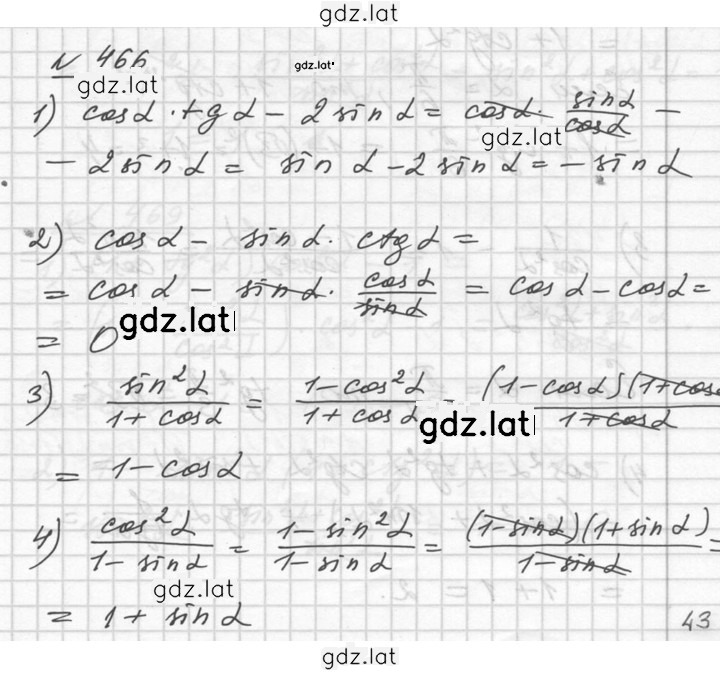 gdz.lat
№ 466
gdz.lat
gdz.lat
1) cos α · tg α − 2 sin α = cos α · sin α / cos α −
gdz.lat
− 2 sin α = sin α − 2 sin α = − sin α
2) cos α − sin α · ctg α =
= cos α − sin α · cos α / sin α = cos α − cos α =
= 0
gdz.lat
3) sin² α / 1 + cos α = 1 − cos² α / 1 + cos α = (1 − cos α)(1 + cos α / 1 + cos α
gdz.lat
= 1 − cos α
4) cos² α / 1 − sin α = 1 − sin² α / 1 − sin α = (1 − sin α)(1 + sin α) / 1 − sin α =
gdz.lat
= 1 + sin α
43
gdz.lat